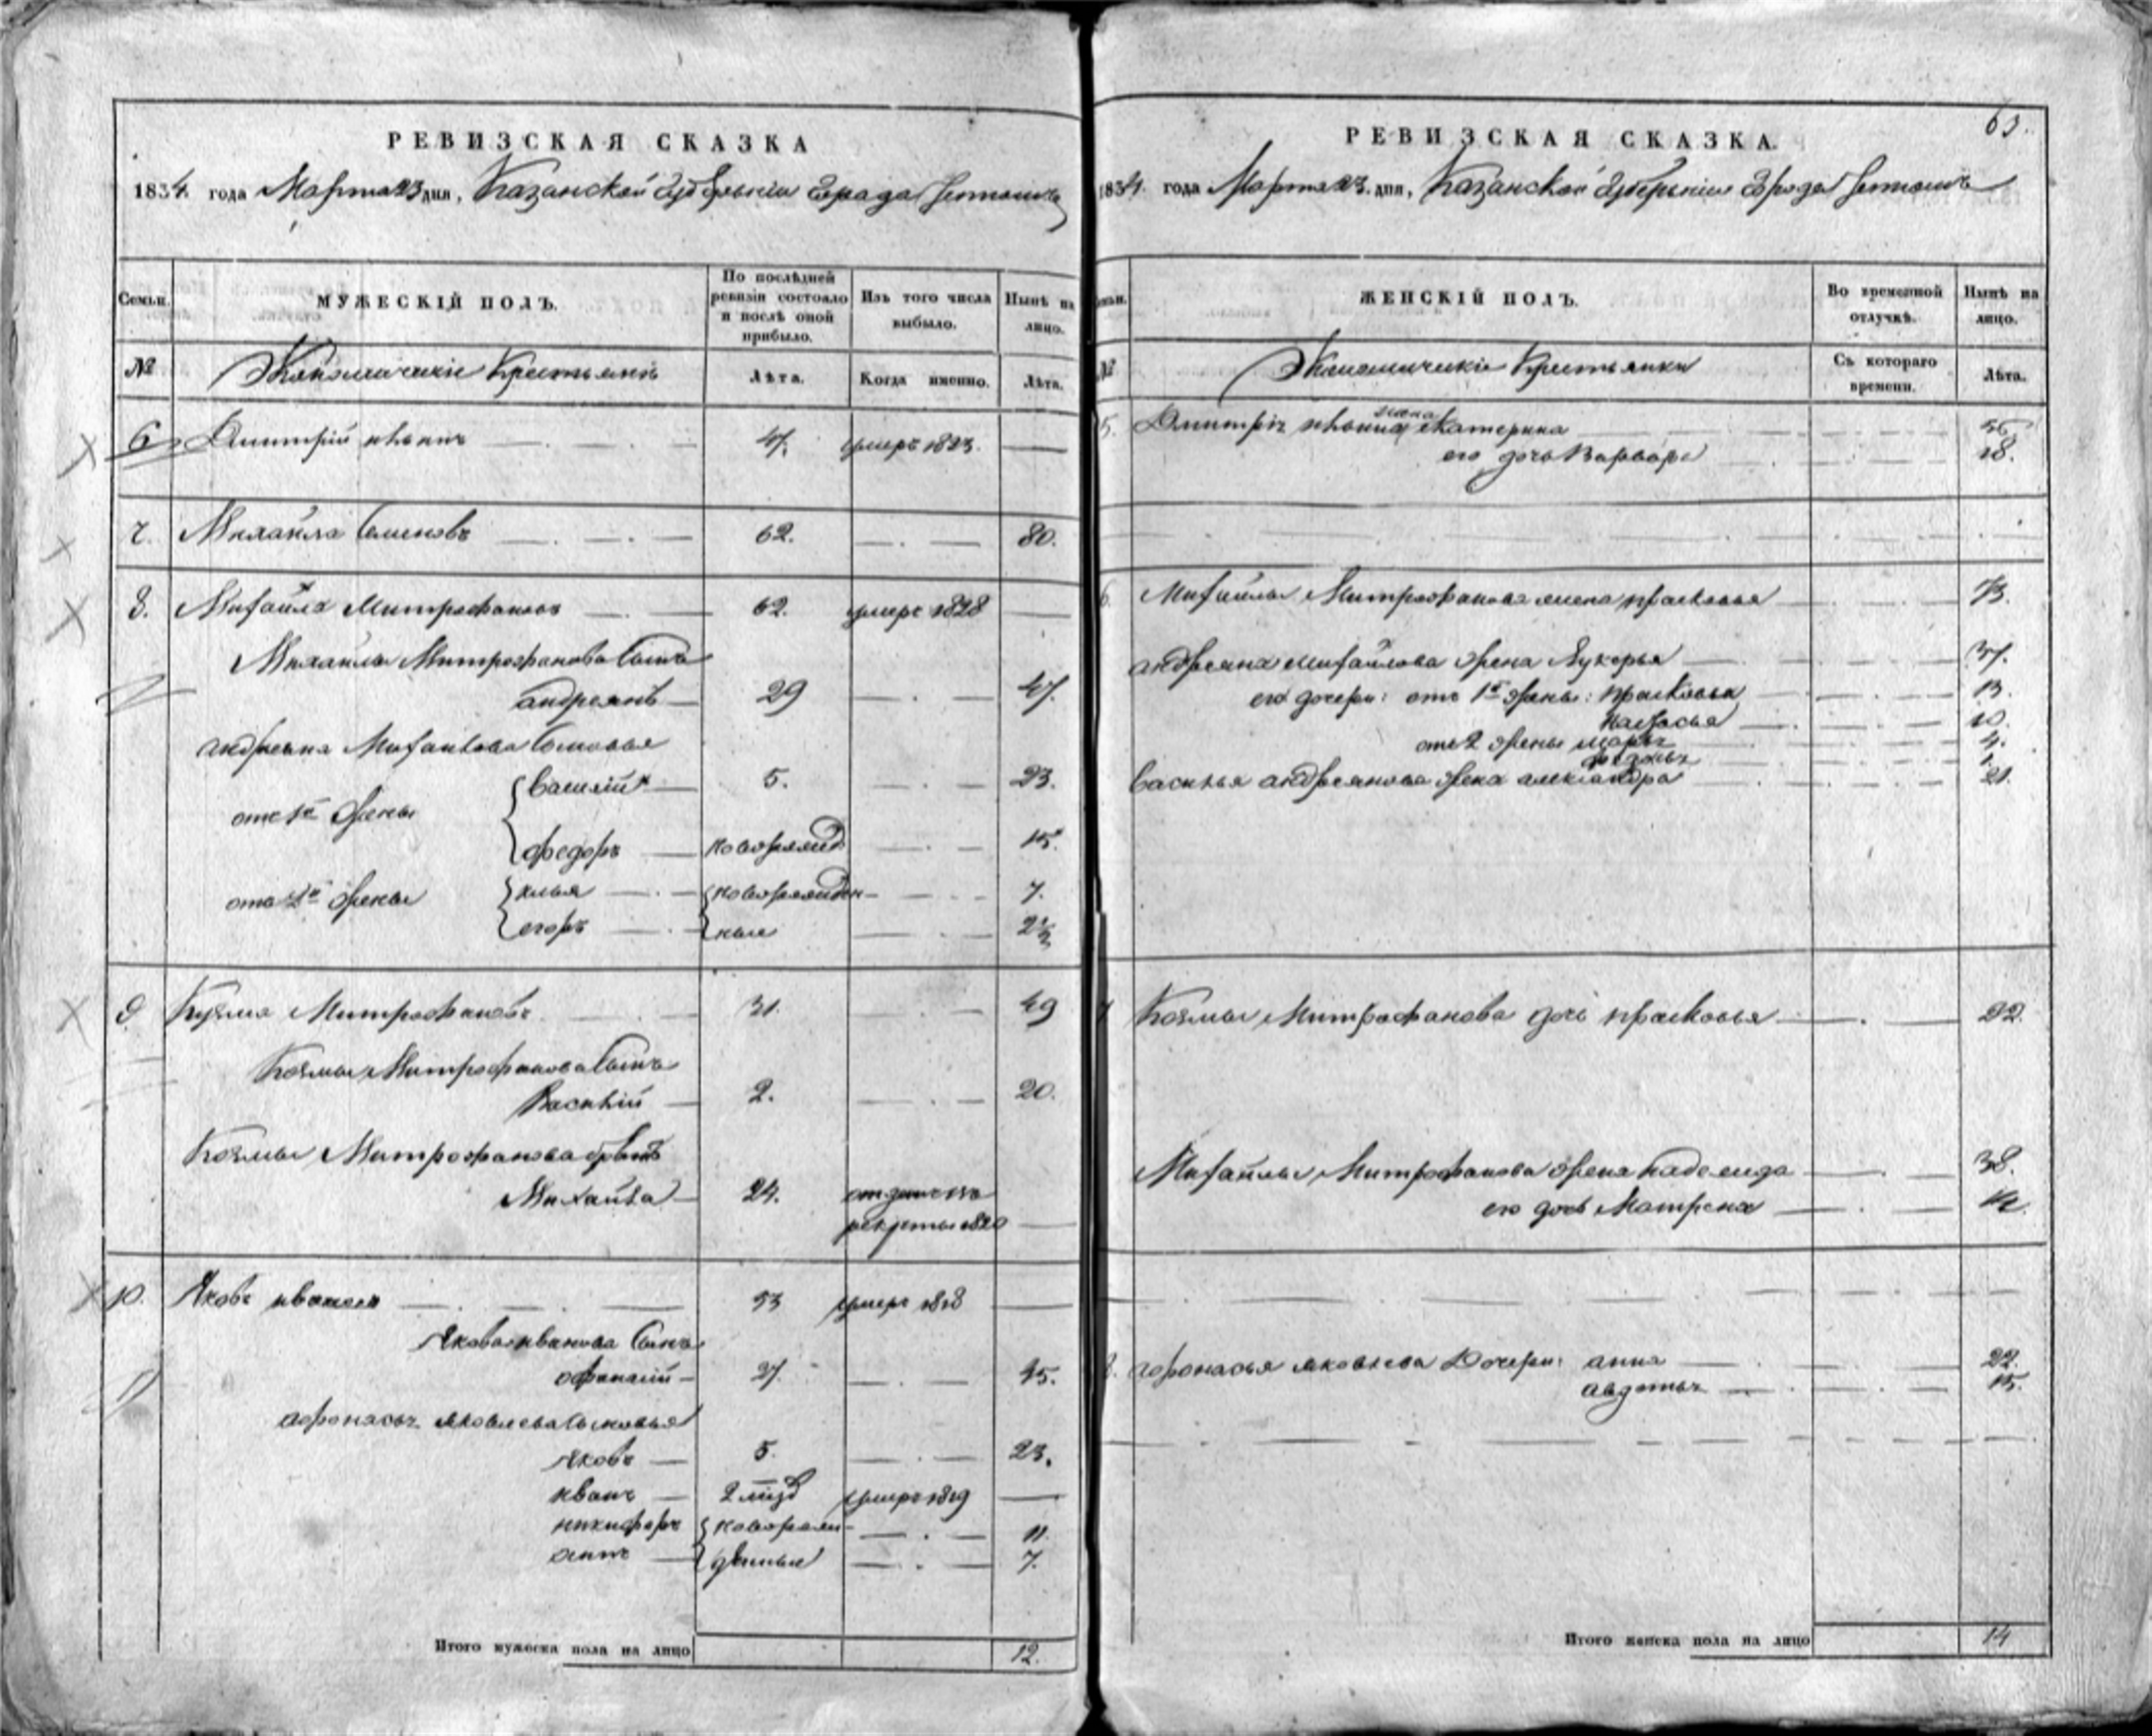 РЕВИЗСКАЯ СКАЗКА
1834. года Марта 23 дня, Казанской Губерніи Града
Семьи.
МУЖЕСКІЙ ПОЛЪ.
По послѣдней ревизіи состояло и послѣ оной прибыло.
Изъ того числа выбыло.
Нынѣ на лицо.
№
Экономическіе Крестьяне
Лѣта.
Когда именно.
Лѣта.
6 Дмитрій 47. умеръ 1823.
7. Михайла Семеновъ 62. 80.
8. Михайла Митрофановъ 62. умеръ 1828
Михайлы Митрофанова сынъ
андреянъ 29 47.
андреяна Михайлова сыновья
василій 5. 23.
отъ 1й жены
федоръ новорожд 15.
отъ 2й жены илья новорожден- 7.
егоръ ные 2½
9 Кузма Митрофановъ 31. 49
Козмы Митрофанова сынъ
Василій 2. 20.
Козмы Митрофанова братъ
Михайла 24. отданъ въ
рекруты 1820
10. Яковъ ивановъ 53 умеръ 1818
Якова иванова сынъ
афонасій 27. 45.
афонасья яковлева сыновья
яковъ 5. 23.
иванъ 2 умеръ 1819
никифоръ новорож- 11.
денные 7.
Итого мужеска пола на лицо 12.
63.
РЕВИЗСКАЯ СКАЗКА.
1834. года Марта 23. дня, Казанской Губерніи Града
ЖЕНСКІЙ ПОЛЪ.
Во временной отлучкѣ.
Нынѣ на лицо.
№
Экономическіе Крестьянки
Съ котораго времени.
Лѣта.
5. жена
Дмитрія Катерина 56
его дочь Варвара 18.
6. Михайлы Митрофанова жена прасковья 73.
андреяна михайлова жена Лукерья 37.
его дочери: отъ 1й жены: прасковья 13.
настасья 10.
отъ 2 жены марья 4.
1.
василья андреянова жена александра 21.
7 Козмы Митрофанова дочь прасковья 22.
Михайлы Митрофанова жена надежда 38.
его дочь Матрена 14.
8. афонасья яковлева Дочери: анна 22.
авдотья 15.
Итого женска пола на лицо 14